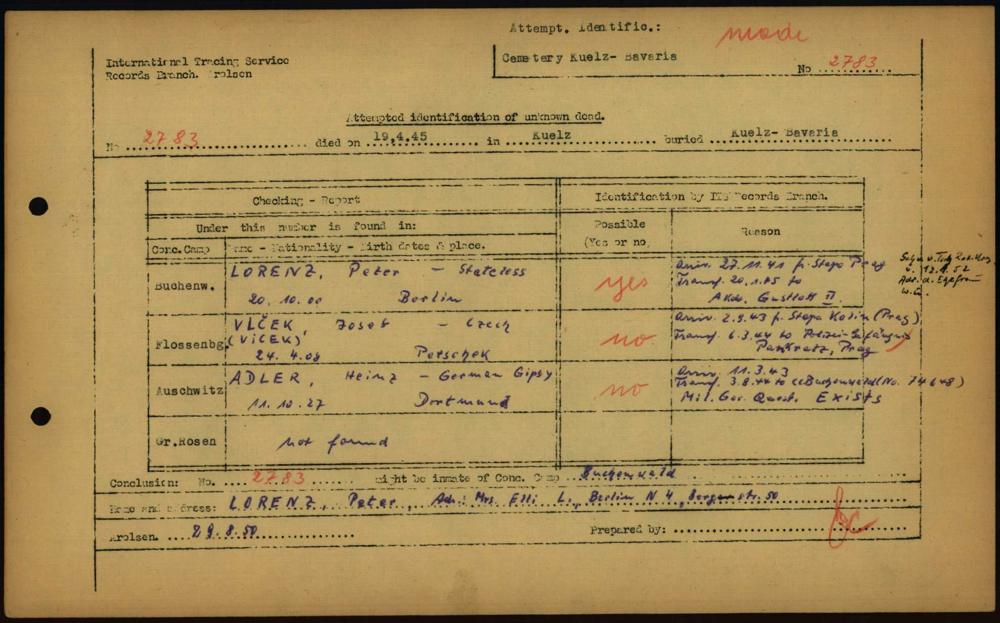 Attempt. Identific.: made
International Tracing Service
Records Branch. Arolsen
Cemetery Kuelz- Bavaria
No 2783
Attempted identification of unknown dead.
No 2783 died on 19.4.45 in Kuelz buried Kuelz- Bavaria
Checking - Report
Identification by ITS Records Branch.
Under this number is found in:
Possible (Yes or no)
Reason
Conc.Camp
Name - Nationality - Birth dates & place.
Buchenw.
LORENZ, Peter - Stateless
20. 10. 00 Berlin
yes
Arriv. 27.11.41 fr. Stapo Prag
Transf. 20.1.45 to
Akdo. Gustloff II.
12.9.52
Flossenbg.
VLČEK, Josef - Czech
(VICEK)
24. 4. 08 Petschek
no
Arriv. 2.9.43 fr. Stapo Kolin (Prag)
Transf. 6.3.44 to Polizei-Gefängnis
Pankratz, Prag
Auschwitz
ADLER, Heinz - German Gipsy
11. 10. 27 Dortmund
no
Arriv. 11.3.43
Transf. 3.8.44 to cc Buchenwald (No. 74648)
Mil. Gov. Quest. Exists
Gr.Rosen
not found
Conclusion: No. 2783 might be inmate of Conc. Camp Buchenwald
Name and address: LORENZ, Peter, Adr.: Mrs. Elli L., Berlin N 4, Bergenstr. 50
Arolsen. 29.8.50
Prepared by: